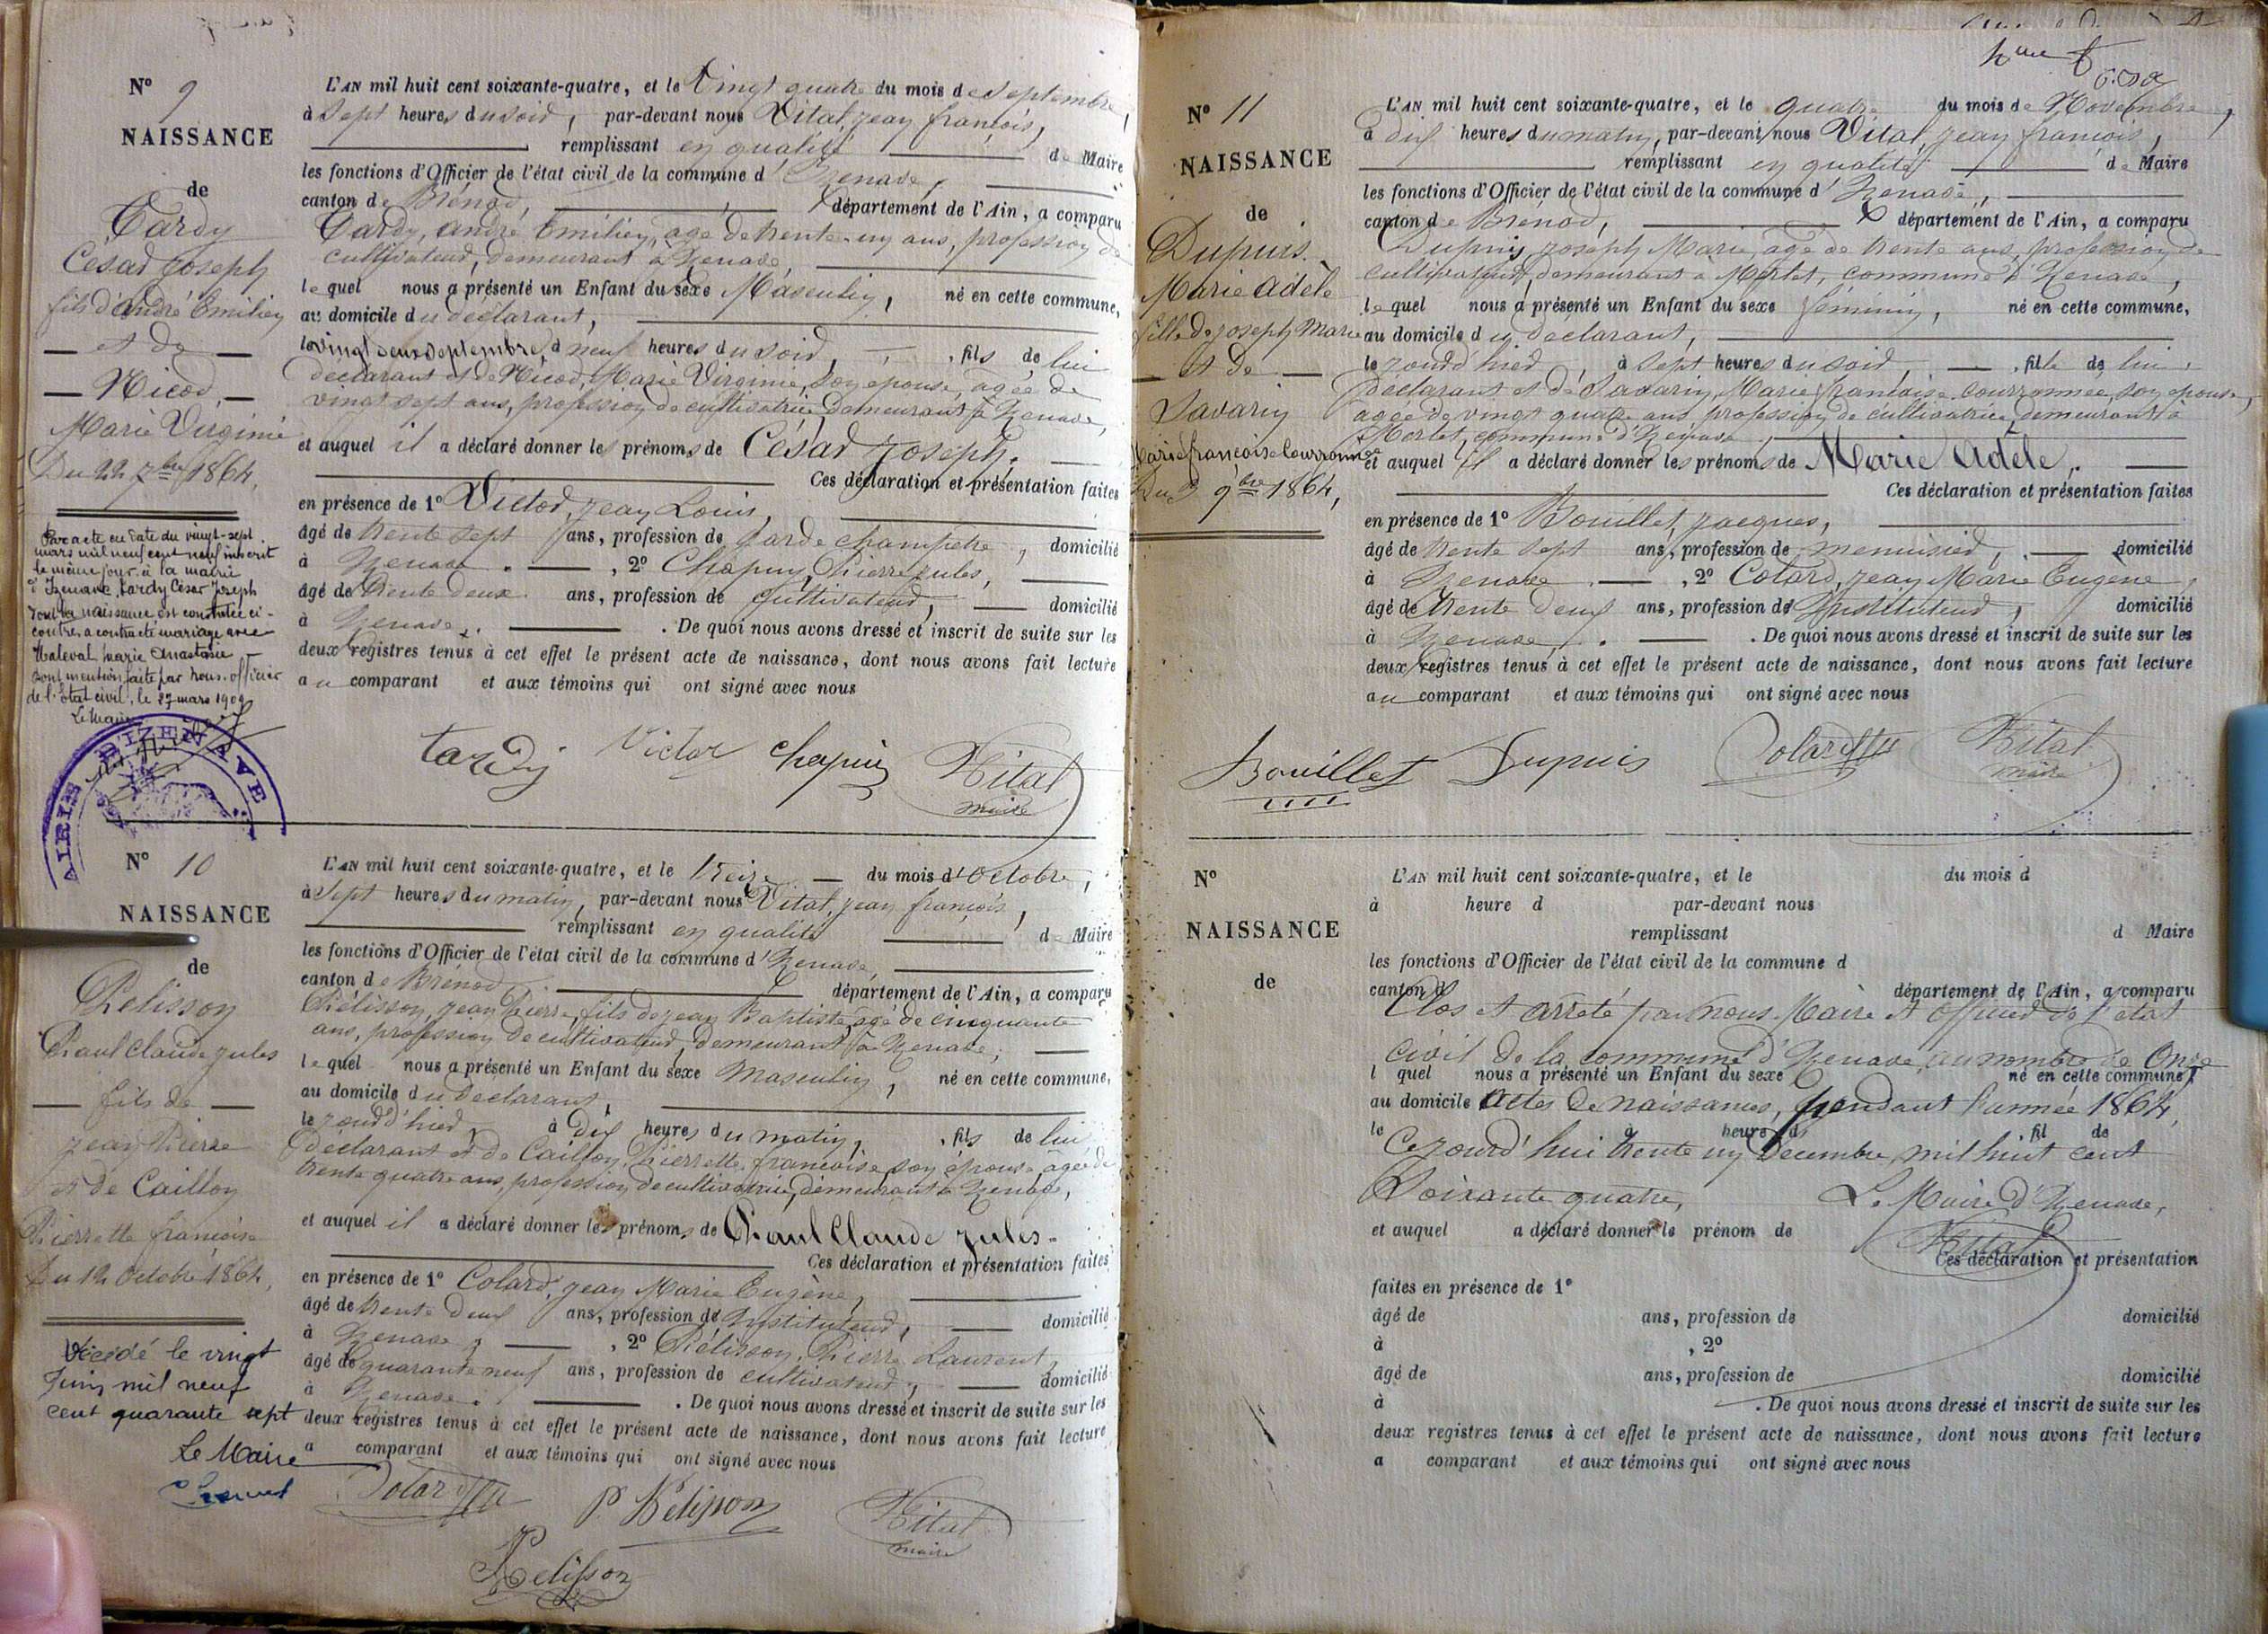 N° 9
NAISSANCE
de
Tardy
César Joseph
fils d'andré Emilien
— et de —
— Nicod, —
Marie Virginie
Du 22 7bre 1864,
Par acte en date du vingt-sept
mars mil neuf cent neuf inscrit
le même jour à la mairie
d'Izenave, tardy César Joseph
dont la naissance est constatée ci-
contre, a contracté mariage avec
Maleval Marie Anastasie
dont mention faite par nous officier
de l'état civil, le 27 mars 1909
Le Maire
MAIRIE D'IZENAVE
L'AN mil huit cent soixante-quatre, et le Vingt quatre du mois de septembre,
à sept heures du soir, par-devant nous Vital, jean françois,
remplissant en qualité de Maire
les fonctions d'Officier de l'état civil de la commune d'Izenave,
canton de Brénod, département de l'Ain, a comparu
Tardy, andré Emilien, agé de trente-un ans, profession de
cultivateur, demeurant à Izenave,
lequel nous a présenté un Enfant du sexe Masculin, né en cette commune,
au domicile du déclarant,
le vingt deux septembre, à neuf heures du soir, fils de lui
declarant et de Nicod, Marie Virginie, son epouse, agée de
vingt sept ans, profession de cultivatrice demeurant à Izenave,
et auquel il a déclaré donner les prénoms de César Joseph.
Ces déclaration et présentation faites
en présence de 1° Victor, jean Louis,
âgé de trente sept ans, profession de garde champêtre, domicilié
à Izenave. , 2° Chapuy, Pierre jules,
âgé de trente deux ans, profession de cultivateur, domicilié
à Izenave. . De quoi nous avons dressé et inscrit de suite sur les
deux registres tenus à cet effet le présent acte de naissance, dont nous avons fait lecture
au comparant et aux témoins qui ont signé avec nous
tardy Victor chapuy Vital
maire
N° 10
NAISSANCE
de
Pelisson
Paul Claude jules
— fils de —
jean Pierre
et de Caillon
Pierrette françoise
Du 12 octobre 1864,
Décédé le vingt
Juin mil neuf
cent quarante sept
Le Maire
L'AN mil huit cent soixante-quatre, et le treize du mois d'octobre,
à sept heures du matin, par-devant nous Vital, jean françois,
remplissant en qualité de Maire
les fonctions d'Officier de l'état civil de la commune d'Izenave,
canton de Brénod, département de l'Ain, a comparu
Pélisson, jean Pierre, fils de jean Baptiste, agé de cinquante
ans, profession de cultivateur, demeurant à Izenave,
lequel nous a présenté un Enfant du sexe Masculin, né en cette commune,
au domicile du declarant
le jourd'hier, à dix heures du matin, fils de lui
declarant et de Caillon, Pierrette françoise, son épouse, agée de
trente quatre ans, profession de cultivatrice, demeurant à Izenave,
et auquel il a déclaré donner les prénoms de Paul Claude jules.
Ces déclaration et présentation faites
en présence de 1° Colard, jean Marie Eugène,
âgé de trente deux ans, profession d'Instituteur, domicilié
à Izenave, , 2° Pélisson, Pierre Laurent,
âgé de quarante neuf ans, profession de cultivateur, domicilié
à Izenave. . De quoi nous avons dressé et inscrit de suite sur les
deux registres tenus à cet effet le présent acte de naissance, dont nous avons fait lecture
a comparant et aux témoins qui ont signé avec nous
Colard P. Pelisson Vital
maire
Pelisson
N° 11
NAISSANCE
de
Dupuis.
Marie Adèle
fille de joseph Marie
— et de —
Savarin
Marie françoise Courronnée
Du 3 9bre 1864,
L'AN mil huit cent soixante-quatre, et le quatre du mois de Novembre,
à dix heures du matin, par-devant nous Vital, jean françois,
remplissant en qualité de Maire
les fonctions d'Officier de l'état civil de la commune d'Izenave,
canton de Brénod, département de l'Ain, a comparu
Dupuis, joseph Marie, agé de trente ans, profession de
cultivateur, demeurant à Mortet, commune d'Izenave,
lequel nous a présenté un Enfant du sexe féminin, né en cette commune,
au domicile du declarant,
le jourd'hier, à sept heures du soir, fille de lui
declarant et de Savarin, Marie françoise courronnée, son epouse,
agée de vingt quatre ans profession de cultivatrice, demeurant à
Mortet, commune d'Izenave,
et auquel il a déclaré donner les prénoms de Marie Adèle.
Ces déclaration et présentation faites
en présence de 1° Bouillet, jacques,
âgé de trente sept ans, profession de menuisier, domicilié
à Izenave. , 2° Colard, jean Marie Eugène,
âgé de trente deux ans, profession d'Instituteur, domicilié
à Izenave, . De quoi nous avons dressé et inscrit de suite sur les
deux registres tenus à cet effet le présent acte de naissance, dont nous avons fait lecture
au comparant et aux témoins qui ont signé avec nous
Bouillet Dupuis Colard Vital
maire
N°
NAISSANCE
de
L'AN mil huit cent soixante-quatre, et le du mois d
à heure d par-devant nous
remplissant d Maire
les fonctions d'Officier de l'état civil de la commune d
canton d département de l'Ain, a comparu
Clos et arrêté par nous Maire et officier de l'état
civil de la commune d'Izenave, au nombre de Onze
l quel nous a présenté un Enfant du sexe né en cette commune,
au domicile actes de naissances, pendant l'année 1864,
le à heure d fil de
Cejourd'hui trente un Decembre mil huit cent
Soixante quatre, Le Maire d'Izenave,
et auquel a déclaré donner le prénom de
Vital
Ces déclaration et présentation
faites en présence de 1°
âgé de ans, profession de domicilié
à , 2°
âgé de ans, profession de domicilié
à . De quoi nous avons dressé et inscrit de suite sur les
deux registres tenus à cet effet le présent acte de naissance, dont nous avons fait lecture
a comparant et aux témoins qui ont signé avec nous